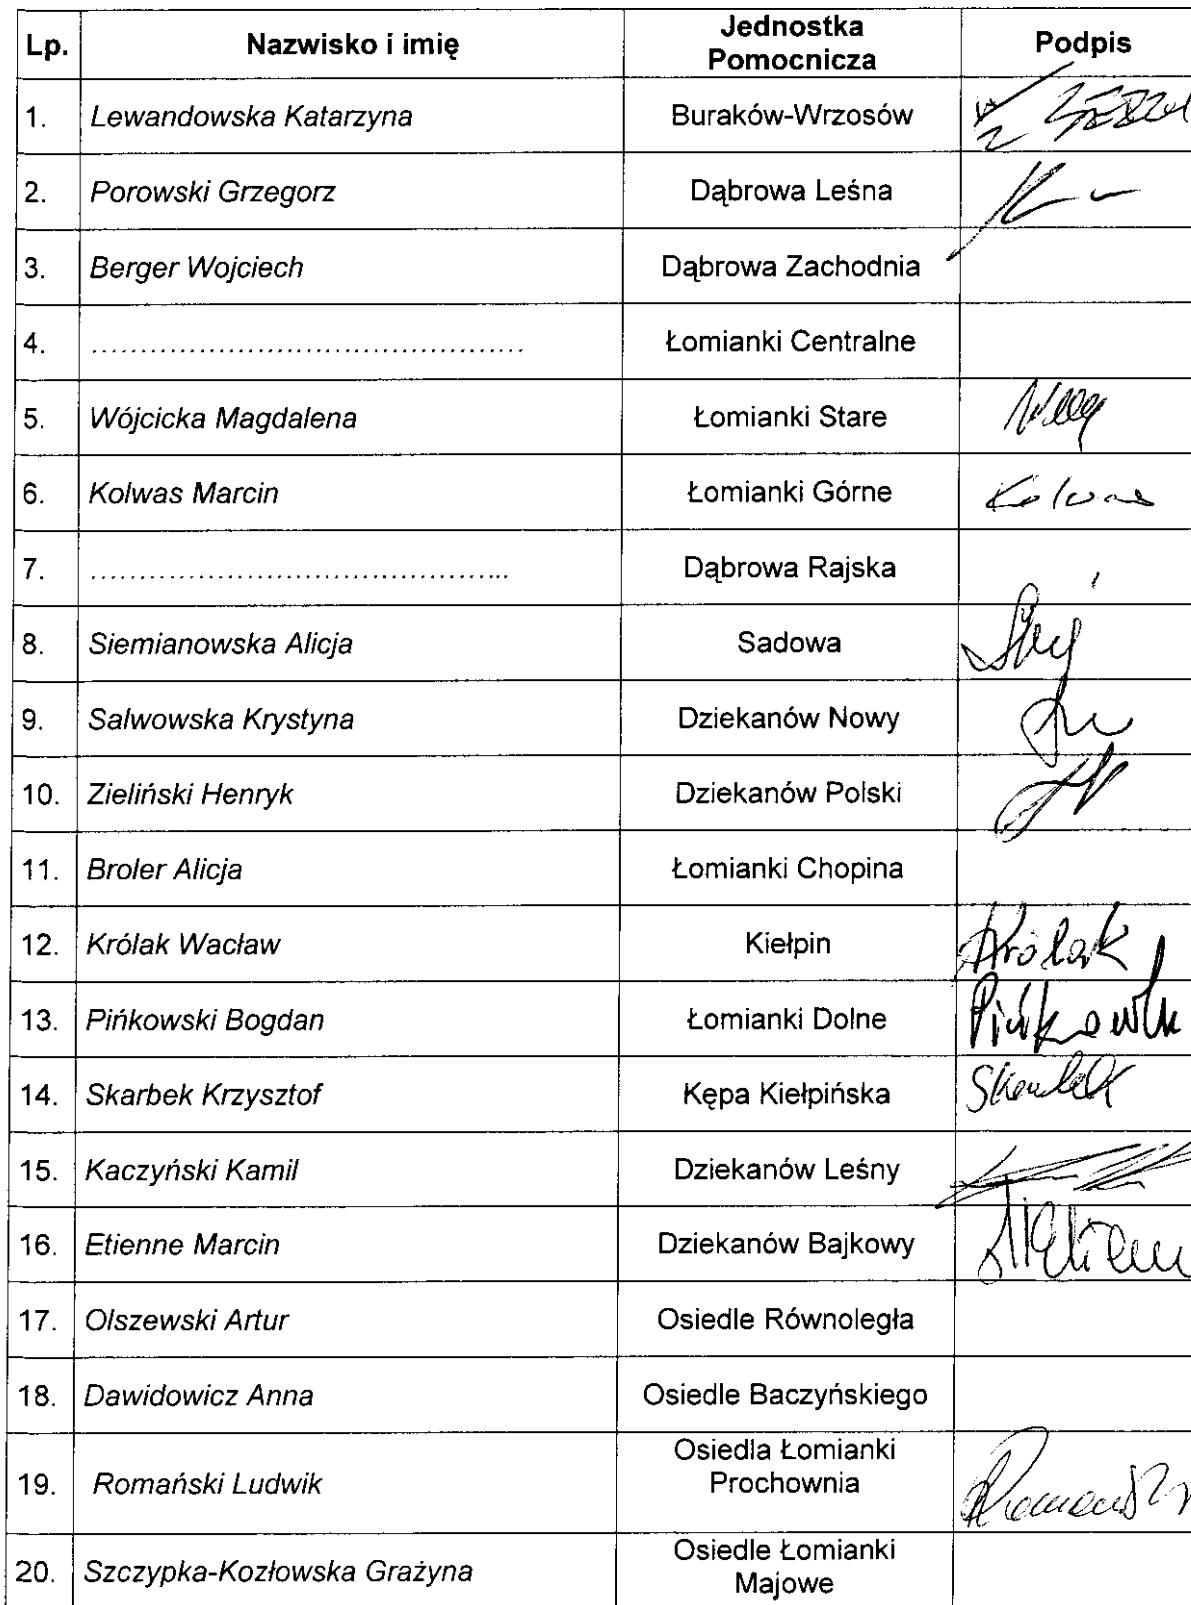 Lp. Nazwisko i imię Jednostka Pomocnicza Podpis
1. Lewandowska Katarzyna Buraków-Wrzosów
2. Porowski Grzegorz Dąbrowa Leśna
3. Berger Wojciech Dąbrowa Zachodnia
4. ............................................. Łomianki Centralne
5. Wójcicka Magdalena Łomianki Stare
6. Kolwas Marcin Łomianki Górne Kolwas
7. ........................................... Dąbrowa Rajska
8. Siemianowska Alicja Sadowa
9. Salwowska Krystyna Dziekanów Nowy
10. Zieliński Henryk Dziekanów Polski
11. Broler Alicja Łomianki Chopina
12. Królak Wacław Kiełpin Królak
13. Pińkowski Bogdan Łomianki Dolne
14. Skarbek Krzysztof Kępa Kiełpińska Skarbek
15. Kaczyński Kamil Dziekanów Leśny
16. Etienne Marcin Dziekanów Bajkowy
17. Olszewski Artur Osiedle Równoległa
18. Dawidowicz Anna Osiedle Baczyńskiego
19. Romański Ludwik Osiedla Łomianki Prochownia
20. Szczypka-Kozłowska Grażyna Osiedle Łomianki Majowe